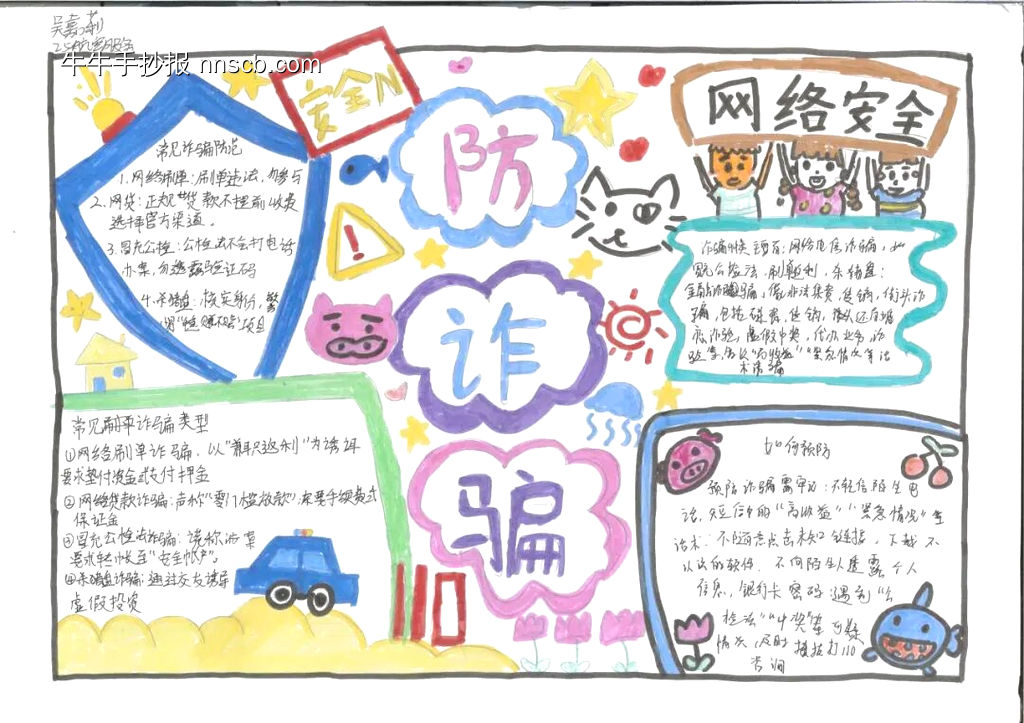 吴嘉莉
牛牛手抄报 nnscb.com
安全
防
诈
骗
网络安全
常见诈骗防范
1.网络刷单:刷单违法,勿参与
2.网贷:正规贷款不提前收费
选择官方渠道。
3.冒充公检:公检法不会打电话
办案,勿透露验证码
4.杀猪盘:核实身份,警
项目
诈骗种类 网络电信诈骗,如
冒充公检法,刷单返利,杀猪盘:
金融诈骗,像非法集资,传销,街头诈
骗,包括碰瓷,
虚假中奖,代办业务,诈
术诱骗
常见刷单诈骗类型
①网络刷单诈骗,以“兼职返利”为诱饵
要求垫付资金或支付押金
②网络贷款诈骗:声称“零门槛放款”:索要手续费或
保证金
③冒充公检法诈骗:谎称涉案
要求转帐至“安全帐户”。
④杀猪盘诈骗:通过交友诱导
虚假投资
如何预防
预防诈骗需牢记:不轻信陌生电
话,短信的“高收益”“紧急情况”等
话术:不随意点击未知链接,下载不
认识的软件.不向陌生人透露个人
信息,银行卡密码 遇到“公
检法”“中奖”等可疑
情况,及时拨打110
咨询